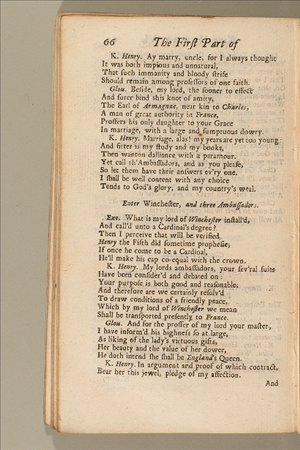 66 The First Part of
K. Henry. Ay marry, uncle, for I always thought
It was both impious and unnatural,
That such immanity and bloody strife
Should remain among professors of one faith.
Glou. Beside, my lord, the sooner to effect
And surer bind this knot of amity,
The Earl of Armagnac, near kin to Charles,
A man of great authority in France,
Proffers his only daughter to your Grace
In marriage, with a large and sumptuous dowry.
K. Henry. Marriage, alas! my years are yet too young:
And fitter is my study and my books,
Then wanton dalliance with a paramour.
Yet call th'Ambassadors, and as you please,
So let them have their answers ev'ry one.
I shall be well content with any choice
Tends to God's glory, and my country's weal.
Enter Winchester, and three Ambassadors.
Exe. What is my lord of Winchester install'd,
And call'd unto a Cardinal's degree?
Then I perceive that will be verified,
Henry the Fifth did sometime prophesie,
If once he come to be a Cardinal,
He'll make his cap co-equal with the crown.
K. Henry. My lords ambassadors, your sev'ral suits
Have been consider'd and debated on:
Your purpose is both good and reasonable:
And therefore are we certainly resolv'd
To draw conditions of a friendly peace,
Which by my lord of Winchester we mean
Shall be transported presently to France.
Glou. And for the proffer of my lord your master,
I have inform'd his highness so at large,
As liking of the lady's virtuous gifts,
Her beauty and the value of her dower,
He doth intend she shall be England's Queen.
K. Henry. In argument and proof of which contract,
Bear her this jewel, pledge of my affection.
And